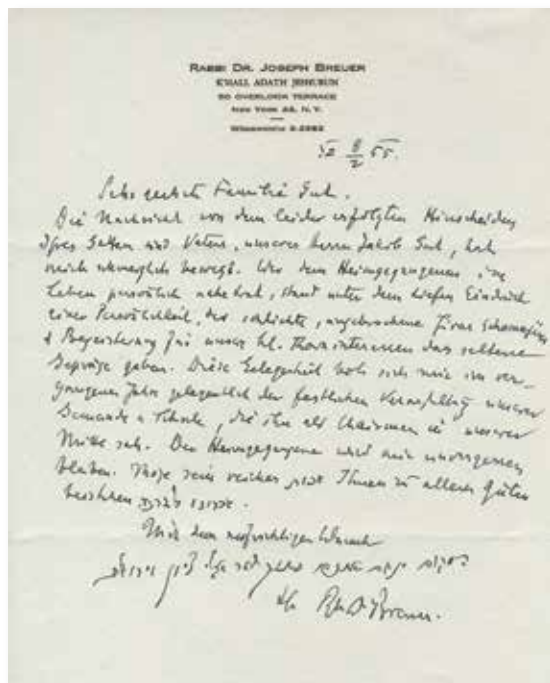 RABBI DR. JOSEPH BREUER
K'HALL ADATH JESHURUN
90 OVERLOOK TERRACE
NEW YORK 33, N. Y.
8/2 55.
Sehr geehrte Familie Gut.
Die Nachricht von dem leider erfolgten Hinscheiden
Ihres Gatten und Vaters, unseres Herrn Jakob Gut, hat
mich bewegt. Wer dem Heimgegangenen im
Leben persönlich nahe trat, stand unter dem tiefen Eindruck
einer Persönlichkeit, der schlichte, ungebrochene
Begeisterung für unsere hl. Thorainteressen das seltene
Gepräge gaben. Diese Gelegenheit bot sich mir im ver-
gangenen Jahr gelegentlich der festlichen Veranstaltung unserer
Gemeinde u Schule, die ihn als Chairman in unserer
Mitte sah. Der Heimgegangene wird mir unvergessen
bleiben. Möge sein reicher זכות Ihnen zu allem Guten
זכרונו לברכה.
Mit dem aufrichtigen Wunsch
המקום ינחם אתכם בתוך שאר אבלי ציון וירושלים
Ihr Rb Dr Breuer.